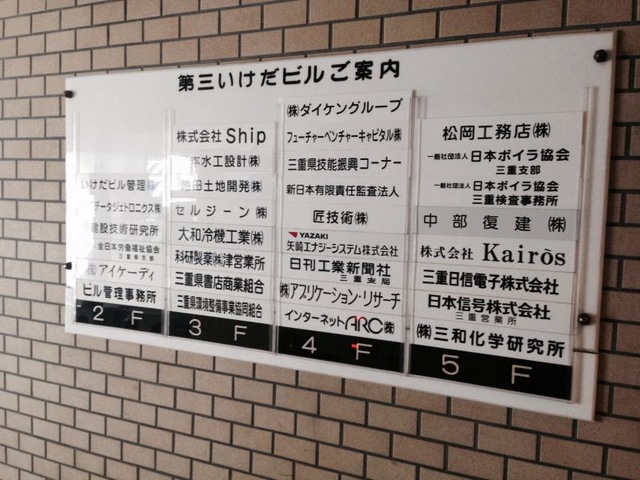 第三いけだビルご案内
いけだビル管理㈱
データジェトロニクス㈱
建設技術研究所
全日本労働福祉協会
三重県支部
㈱アイケーディ
ビル管理事務所
2 F
株式会社 Ship
本水工設計㈱
池田土地開発㈱
セルジーン㈱
大和冷機工業㈱
科研製薬㈱津営業所
三重県書店商業組合
三重県環境整備事業協同組合
3 F
㈱ダイケングループ
フューチャーベンチャーキャピタル㈱
三重県技能振興コーナー
新日本有限責任監査法人
匠技術㈱
YAZAKI
矢崎エナジーシステム株式会社
日刊工業新聞社
三重支局
㈱アプリケーション・リサーチ
インターネットARC㈱
4 F
松岡工務店㈱
一般社団法人 日本ボイラ協会
三重支部
一般社団法人 日本ボイラ協会
三重検査事務所
中部復建 ㈱
株式会社 Kairòs
三重日信電子株式会社
日本信号株式会社
三重営業所
㈱三和化学研究所
5 F